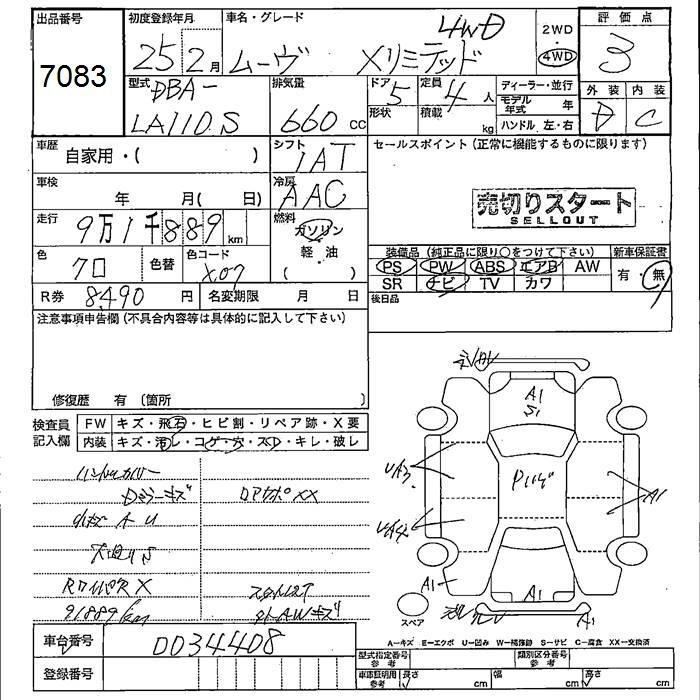 出品番号
7083
初度登録年月
25年 2月
車名・グレード
ムーヴ Xリミテッド 4WD
2WD
・
4WD
評価点
3
外装 内装
D C
型式
DBA-
LA110S
排気量
660 cc
ドア 5
形状
定員 4 人
積載 kg
ディーラー・並行
モデル年式 年
ハンドル 左・右
車歴
自家用・( )
シフト
IAT
セールスポイント (正常に機能するものに限ります)
売切りスタート
SELLOUT
車検
年 月( 日)
冷房
AAC
走行
9万1千889 km
燃料
ガソリン
軽・油
・
色
クロ
色替
色コード
X07
装備品 (純正品に限り○をつけて下さい)
新車保証書
PS PW ABS エアB AW
SR ナビ TV カワ
有・無
後日品
R券 8490 円
名変期限 月 日
注意事項申告欄 (不具合内容等は具体的に記入して下さい)
修復歴 有 (箇所 )
検査員
記入欄
FW キズ・飛石・ヒビ割・リペア跡・X要
内装 キズ・汚レ・コゲ・穴・スレ・キレ・破レ
ハンドルカバー
Dミラーキズ
小キズ A U
91889km
A1
S1
UA3
A1
A1
A1
A1
スペア
A-キズ E-エクボ U-凹み W-補修跡 S-サビ C-腐食 XX-交換済
車台番号
0034408
登録番号
型式指定番号
参考
類別区分番号
参考
車庫証明用
参考
長さ cm
幅 cm
高さ cm